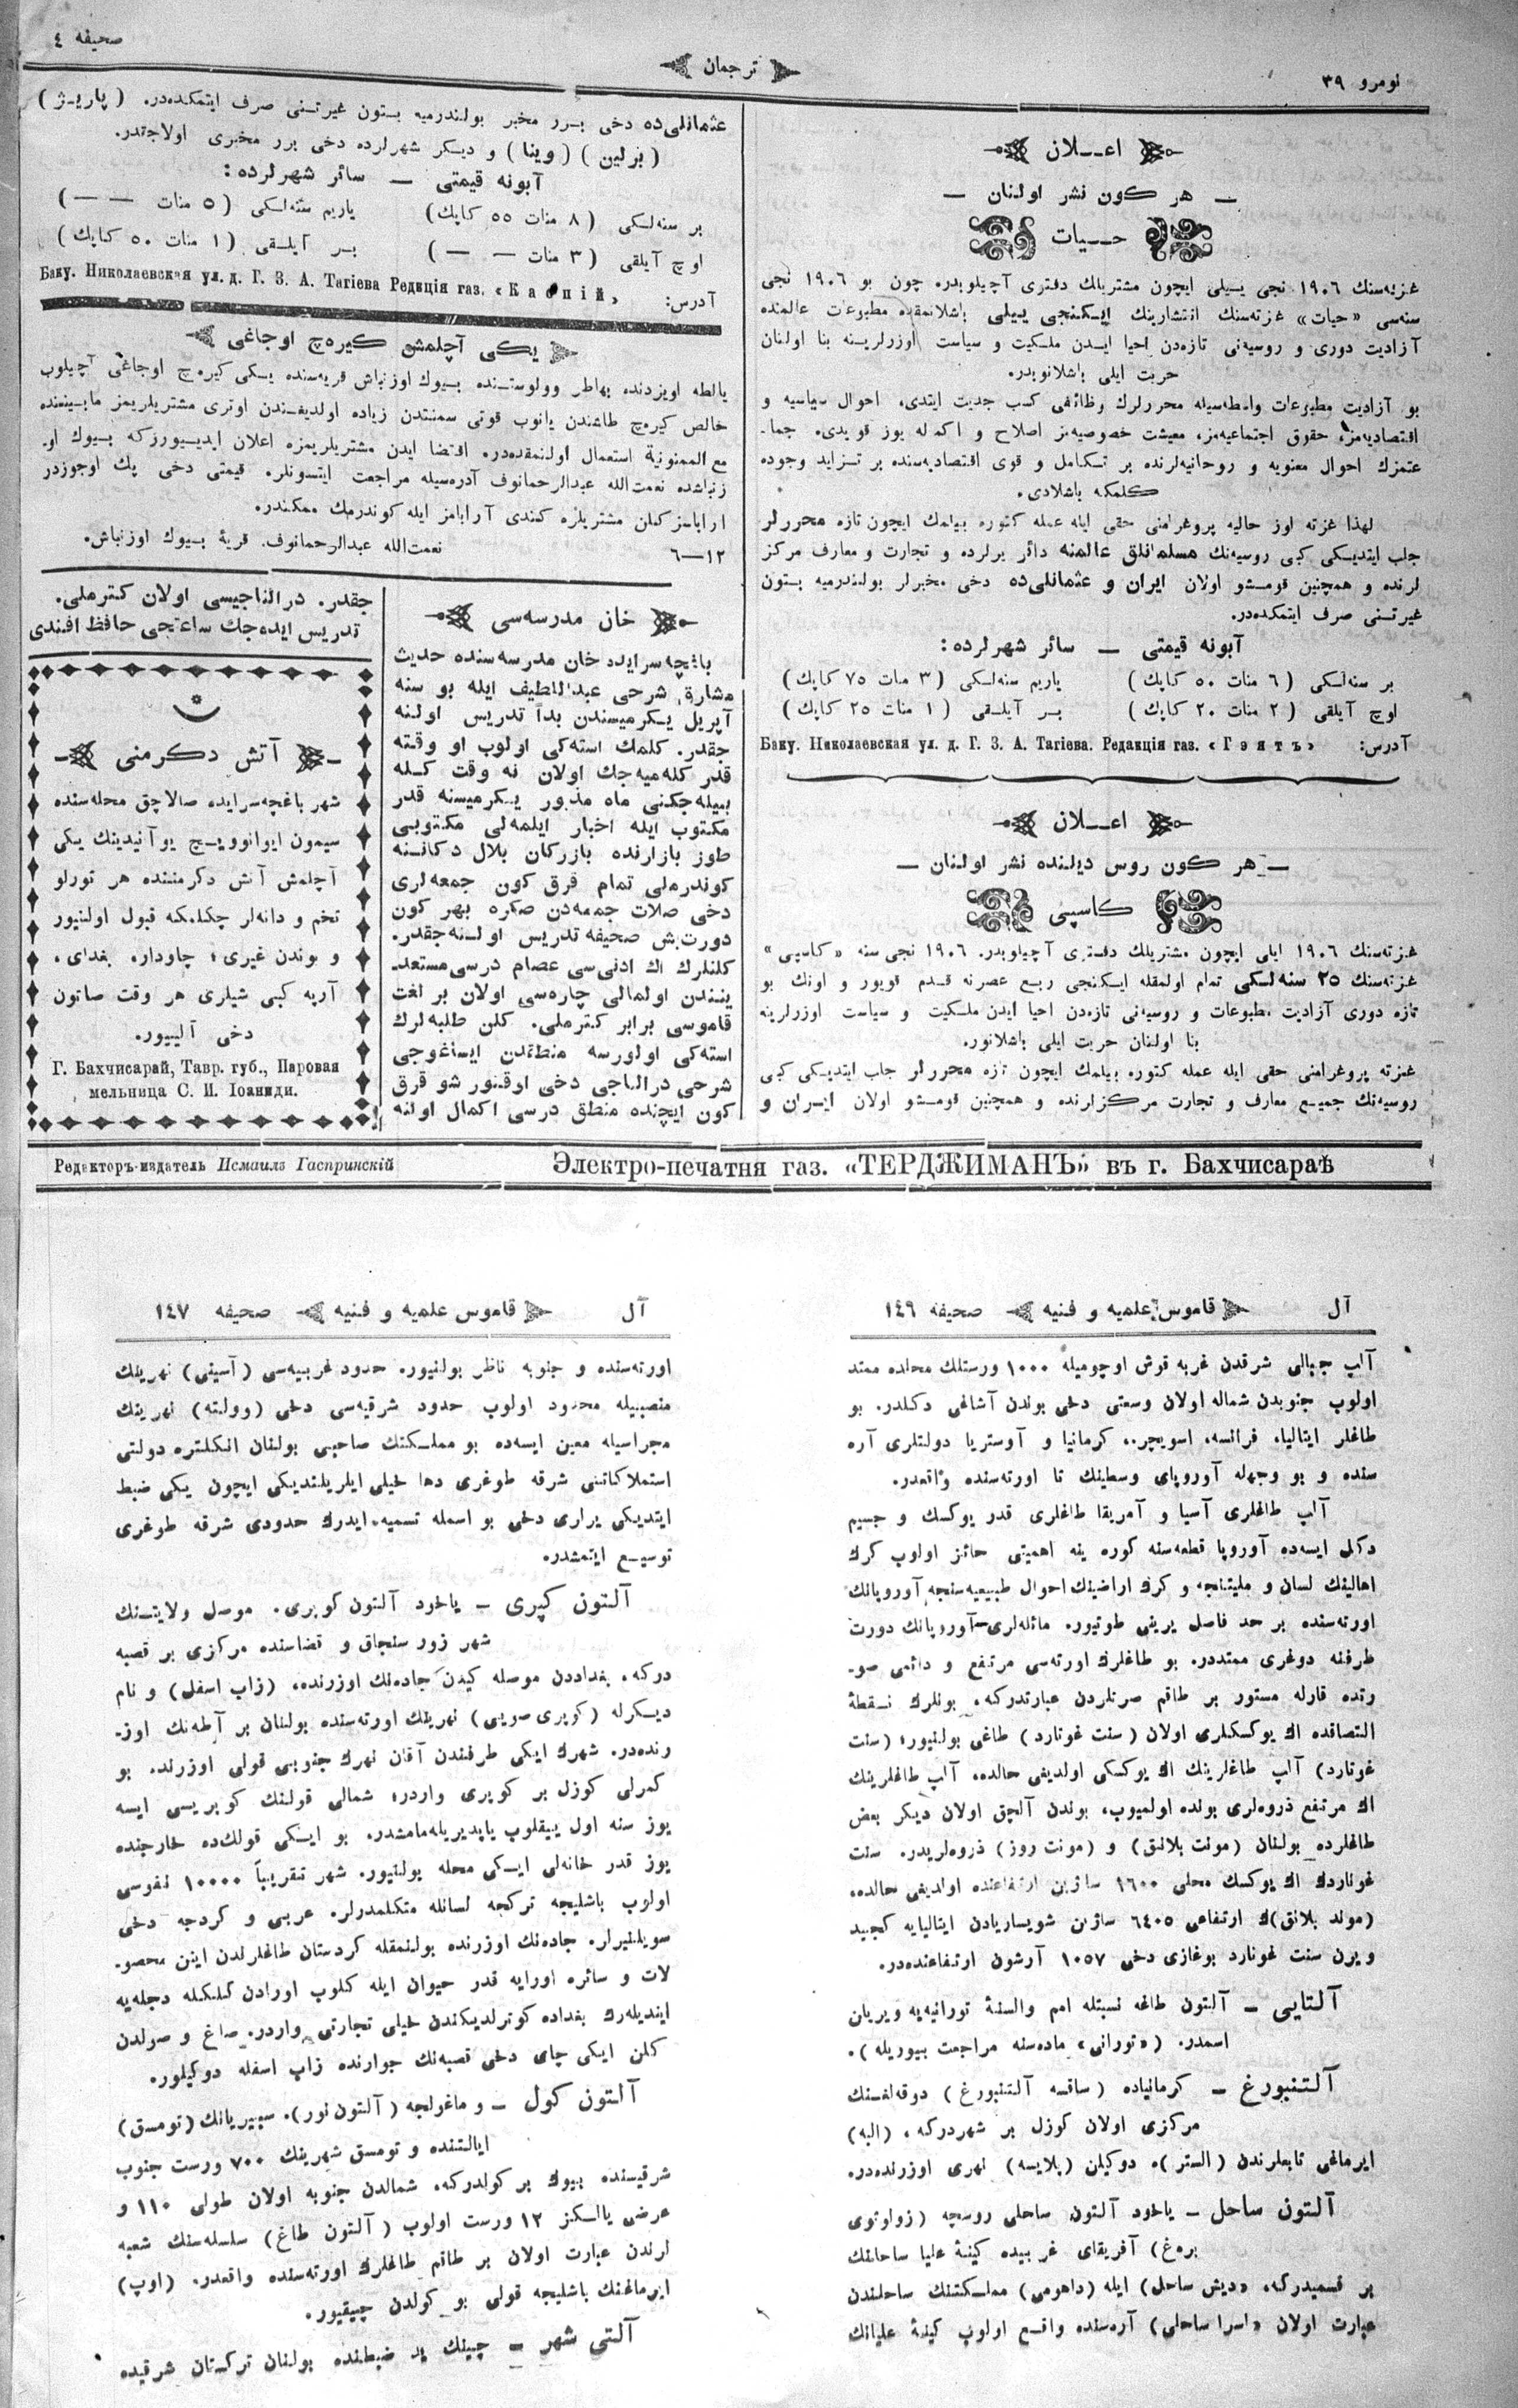 نومرو ٣٩
ترجمان
صحيفه ٤
اعـــلان
— هر كون نشر اولنان —
حـــيات
غزته‌سنك ١٩٠٦ نجى ييلى ايچون مشتريلك دفترى آچيلوبدر. چون بو ١٩٠٦ نجى
سنه‌سى «حيات» غزته‌سنك انتشارينك ايكنجى ييلى باشلانمقده مطبوعات عالمنده
آزاديت دورى و روسيه‌نى تازه‌دن احيا ايدن ملكيت و سياست اوزرلرينه بنا اولنان
حريت ايلى باشلانوبدر.
بو آزاديت مطبوعات واسطه‌سيله محررلرك وظائفى كسب جديت ايتدى. احوال سياسيه و
اقتصاديه‌مز، حقوق اجتماعيه‌مز، معيشت خصوصيه‌مز اصلاح و اكماله يوز قويدى. جما-
عتمزك احوال معنويه و روحانيه‌لرنده بر تكامل و قوى اقتصاديه‌سنده بر تزايد وجوده
كلمكه باشلادى.
لهذا غزته اوز حاليه پروغرامنى حقى ايله عمله كتوره بيلمك ايچون تازه محررلر
جلب ايتديكى كبى روسيه‌نك مسلمانلق عالمنه دائر يرلرده و تجارت و معارف مركز
لرنده و همچنين قومشو اولان ايران و عثمانلى‌ده دخى مخبرلر بولندرميه بستون
غيرتنى صرف ايتمكده‌در.
آبونه قيمتى — سائر شهرلرده:
بر سنه‌لكى (٦ منات ٥٠ كاپك) ياريم سنه‌لكى (٣ منات ٧٥ كاپك)
اوچ آيلقى (٢ منات ٢٠ كاپك) بـر آيلـقى (١ منات ٢٥ كاپك)
آدرس: Баку. Николаевская ул. д. Г. З. А. Тагіева. Редакція газ. «Гэятъ»
اعـــلان
— هر كون روس ديلنده نشر اولنان —
كاسپى
غزته‌سنك ١٩٠٦ ايلى ايچون مشتريلك دفترى آچيلوبدر. ١٩٠٦ نجى سنه «كاسپى»
غزته‌سنك ٢٥ سنه‌لكى تمام اولمقله ايكنجى ربع عصرنه قدم قويور و اونك بو
تازه دورى آزاديت مطبوعات و روسيه‌نى تازه‌دن احيا ايدن ملكيت و سياست اوزرلرينه
بنا اولنان حريت ايلى باشلانور.
غزته پروغرامنى حقى ايله عمله كتوره بيلمك ايچون تازه محررلر جلب ايتديكى كبى
روسيه‌نك جميع معارف و تجارت مركزلرنده و همچنين قومشو اولان ايران و
عثمانلى‌ده دخى بـرر مخبر بولندرميه بستون غيرتنى صرف ايتمكده‌در. (پاريژ)
(برلين) (وينا) و ديكر شهرلرده دخى برر مخبرى اولاجقدر.
آبونه قيمتى — سائر شهرلرده:
بر سنه‌لكى (٨ منات ٥٥ كاپك) ياريم سنه‌لكى (٥ منات — —)
اوچ آيلقى (٣ منات — —) بـر آيلـقى (١ منات ٥٠ كاپك)
آدرس: Баку. Николаевская ул. д. Г. З. А. Тагіева Редакція газ. «Каспій»
يكى آچلمش كيره‌چ اوجاغى
يالطه اويزدنده بهاطر وولوستـنده بـيوك اوزنباش قريه‌سنده يـكى كيره‌چ اوجاغى آچيلوب
خالص كيره‌چ طاشندن يانوب قوتى سمنتدن زياده اولديغـندن اوترى مشتريلريمز مابـيننده
مع الممنونية استعمال اولنمقده‌در. اقتضا ايدن مشتريلريمزه اعلان ايديـيورزكه بـيوك او-
زنباشده نعمت‌الله عبدالرحمانوف آدره‌سيله مراجعت ايتسونلر. قيمتى دخى پك اوجوزدر
ارابامز كلان مشتريلره كندى آرابامز ايله كوندرمك ممكندر.
١٢—٦ نعمت‌الله عبدالرحمانوف. قريۀ بـيوك اوزنباش.
خان مدرسه‌سى
باغچه‌سرايده خان مدرسه‌سنده حديث
مشارق شرحى عبداللطيف ايله بو سنه
آپريل يـكرميسندن بدأ تدريس اولنه
جقدر. كلمك استه‌كى اولوب او وقته
قدر كله‌ميه‌جك اولان نه وقت كـله
بيله‌جكنى ماه مذبور يـكرميسنه قدر
مكتوب ايله اخبار ايلمه‌لى مكتوبى
طوز بازارنده بازركان بلال دكانـنه
كوندرملى تمام قرق كون جمعه‌لرى
دخى صلات جمعه‌دن صكره بهر كون
دورت‌بش صحيفه تدريس اولـنه‌جقدر.
كلنلرك اك ادنى‌سى عصام درسى مستعد-
ينندن اولمالى چاره‌سى اولان بر لغت
قاموسى برابر كترملى. كلن طلبه‌لرك
استه‌كى اولورسه منطقدن ايساغوجى
شرحى درالناجى دخى اوقنور شو قرق
كون ايچنده منطق درسى اكمال اولنه
جقدر. درالناجيسى اولان كترملى.
تدريس ايده‌جك ساعتجى حافظ افندى
آتش دكرمنى
شهر باغچه‌سرايده صالاچق محله‌سنده
سيمون ايوانوويـچ يوآنيدينك يكى
آچلمش آتش دكرمننده هر تورلو
تخم و دانه‌لر چكلمكه قبول اولنيور
و بوندن غيرى؛ چاودار، بغداى،
آرپه كبى شيلرى هر وقت صاتون
دخى آليـيور.
Г. Бахчисарай, Тавр. губ., Паровая
мельница С. И. Іоаниди.
Редакторъ-издатель Исмаилъ Гаспринскій
Электро-печатня газ. «ТЕРДЖИМАНЪ» въ г. Бахчисараѣ
آل قاموس علميه و فنيه صحيفه ١٤٦
آلپ جبالى شرقدن غربه قوش اوچوميله ١٠٠٠ ورستلك محلده ممتد
اولوب جنوبدن شماله اولان وسعتى دخى بوندن آشاغى دكلدر. بو
طاغلر ايتاليا، فرانسه، اسويچر، كرمانيا و آوستريا دولتلرى آره
سنده و بو وجهله آوروپاى وسطينك تا اورته‌سنده واقعدر.
آلپ طاغلرى آسيا و آمريقا طاغلرى قدر يوكسك و جسيم
دكل ايسه‌ده آوروپا قطعه‌سنه كوره ينه اهميتى حائز اولوب كرك
اهالينك لسان و مليتنجه و كرك اراضينك احوال طبيعيه‌سنجه آوروپانك
اورته‌سنده بر حد فاصل يرينى طوتيور. مائله‌لرى آوروپانك دورت
طرفنه دوغرى ممتددر. بو طاغلرك اورته‌سى مرتفع و دائمى صو-
رتده قارله مستور بر طاقم صرتلردن عبارتدركه، بونلرك نـقطۀ
التصاقده اك يوكسكلرى اولان (سنت غوتارد) طاغى بولنيور؛ (سنت
غوتارد) آلپ طاغلرينك اك يوكسكى اولديغى حالده، آلپ طاغلرينك
اك مرتفع ذروه‌لرى بولده اولميوب، بوندن آلچق اولان ديكر بعض
طاغلرده بولنان (مونت بلانق) و (مونت روز) ذروه‌لريدر. سنت
غوتاردك اك يوكسك محلى ١٦٠٠ ساژين ارتفاعنده اولديغى حالده،
(مولد بلانق)ك ارتفاعى ٦٤٠٥ ساژين شويساريادن ايتاليايه كجيد
ويرن سنت غوتارد بوغازى دخى ١٠٥٧ آرشون ارتفاعنده‌در.
آلتايى — آلتون طاغه نسبتله امم والسنۀ تورانيه‌يه ويريلن
اسمدر. («تورانى» ماده‌سنه مراجعت بيوريله).
آلتنبورغ — كرمانياده (ساقسه آلتنبورغ) دوقه‌لغنك
مركزى اولان كوزل بر شهردركه، (البه)
ايرماغى تابعلرندن (الستر)ه دوكيلن (پلايسه) نهرى اوزرنده‌در.
آلتون ساحل — ياخود آلتون ساحلى روسچه (زولوتوى
بره‌غ) آفريقاى غربيده كينۀ عليا ساحلنك
بر قسميدركه، «ديش ساحل) ايله (داهومى) مملـكتنك ساحلندن
عبارت اولان «اسرا ساحلى) آره‌سنده واقـع اولوب كينۀ عليانك
آل قاموس علميه و فنيه صحيفه ١٤٧
اورته‌سنده و جنوبه ناظر بولنيور. حدود غربيه‌سى (آسينى) نهرينك
منصبيله محدود اولوب حدود شرقيه‌سى دخى (وولته) نهرينك
مجراسيله معين ايسه‌ده بو مملـكتك صاحبى بولنان انكلتره دولتى
استملاكاتنى شرقه طوغرى دها خيلى ايلريلتديكى ايچون يكى ضبط
ايتديكى يرلرى دخى بو اسمله تسميه ايدرك حدودى شرقه طوغرى
توسيـع ايتمشدر.
آلتون كپرى — ياخود آلتون كوپرى. موصل ولايتـنك
شهر زور سنجاق و قضاسنده مركزى بر قصبه
دركه، بغداددن موصله كيدن جاده‌نك اوزرنده، (زاب اسفل) و نام
ديـكرله (كوپرى صويى) نهرينك اورته‌سنده بولنان بر آطه‌نك اوز-
رنده‌در. شهرك ايكى طرفندن آقان نهرك جنوبى قولى اوزرنده بو
كمرلى كوزل بر كوپرى واردر؛ شمالى قولنك كوپريسى ايسه
يوز سنه اول ييقلوب ياپديريله‌مامشدر. بو ايـكى قولك‌ده خارجنده
يوز قدر خانه‌لى ايـكى محله بولنيور. شهر تـقريباً ١٠٠٠٠ نفوسى
اولوب باشليجه تركجه لسانله متكلمدرلر. عربى و كردجه دخى
سويلنيرلر. جاده‌نك اوزرنده بولنمقله كردستان طاغلرندن اينن محصو-
لات و سائره اورايه قدر حيوان ايله كلوب اورادن كلكله دجله‌يه
اينديله‌رك بغداده كوترلديكندن خيلى تجارتى واردر. صاغ و صولدن
كلن ايكى چاى دخى قصبه‌نك جوارنده زاب اسفله دوكيلور.
آلتون كول — و ماغولجه (آلتون نور). سيبيريانك (تومسق)
ايالتنده و تومسق شهرينك ٧٠٠ ورست جنوب
شرقيسنده بيوك بر كولدركه، شمالدن جنوبه اولان طولى ١١٠ و
عرضى يالـكز ١٢ ورست اولوب (آلتون طاغ) سلسله‌سنك شعبه
لرندن عبارت اولان بر طاقم طاغلرك اورته‌سنده واقعدر. (اوب)
ايرماغنك باشليجه قولى بو كولدن چيقيور.
آلتى شهر — چينك يد ضبطنده بولنان تركستان شرقيده